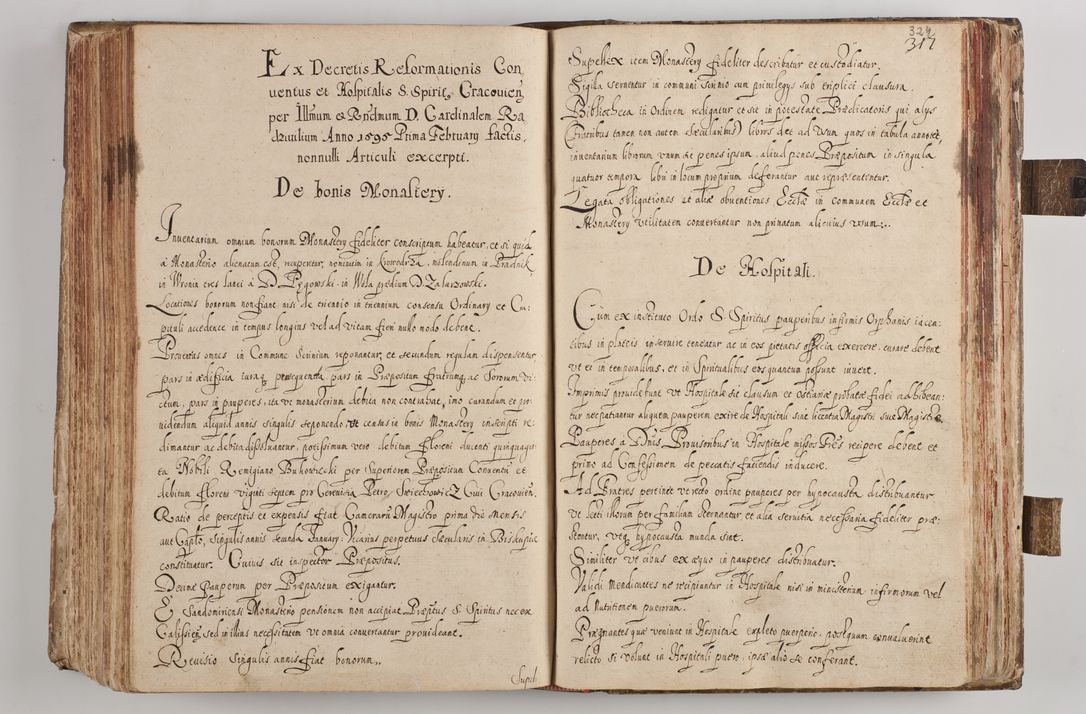 Ex Decretis Reformationis Con
uentus et Hospitalis S. Spirit9 Cracouien̄
per Illmum & Rndmum D. Cardinalem Ra
dziuilium Anno 1595 Prima February factis,
nonnulli Articuli excerpti.
De bonis Monastery.
Inuentarium omnium bonorum Monastery fideliter conscriptum habeatur, et si quid
à Monasterio alienatum est, recuperetur, nominatim in Krowodrza, molendinum in Prądnik,
in Wronin tres lanei à D. Pęgowski. in Wola prædium D. Zalaszowski.
Locationes bonorum non fiant nisi de triennio in triennium consensu Ordinary et Ca:
pituli accedente in tempus longius vel ad vitam fieri nullo modo debent.
Prouentus omnes in Commune Scrinium reponantur, et secundum regulam dispensentur,
pars in ædificia iuraq; persequenda pars in Præpositum fratrumq; ac Sororum Vi:
ctum, pars in pauperes, ita ut monasterium debita non contrahat, imo curandum et pro:
uidendum aliquid annis singulis seponendo, ut census in bonis Monastery inscripti re:
dimantur ac debita dissoluantur, potissimum vero debitum floreni ducenti quinquagin
ta Nobili Remigiano Bukowiecki per Superiorem Præpositum Conuentus et
debitum florem viginti septem pro Cereuisia Petro Sviechowicz Ciui Cracouien̄.
Ratio de perceptis et expensis fiat Camerarii Magistro prima die mensis
aut Caplo, singulis annis secunda January: Vicarius perpetuus sæcularis in Biskupice
constituatur. Cuius sit inspector Præpositus.
Decimæ pauperum per Præpositum exigantur.
E Sandomiriensi Monasterio pensionem non accipiat Præptus S. Spiritus nec ex
Calissien̄, sed in illius necessitatem ut omnia conuertantur prouideant.
Reuisio singulis annis fiat bonorum.
Supell
324
317
Supellex item Monastery fideliter describatur et custodiatur.
Sigilla seruentur in communi scrinio cum priuilegys sub triplici clausura.
Bibliotheca in Ordinem redigatur et sit in potestate Prædicatoris qui alys
(Fratribus tamen non autem sæcularibus) libros det ad Usum quos in tabula annotet,
inuentarium librorum vnum sit penes ipsum, aliud penes Præpositum in singula
quatuor tempora libri in locum proprium deferantur aut repræsententur.
Legata obligationes et aliæ obuentiones Eccliæ in communem Eccliæ et
Monastery vtilitatem conuertantur non priuatum alicuius vsum.
De Hospitali.
Cum ex instituto Ordo S. Spiritus pauperibus infirmis Orphanis iacen:
tibus in plateis inseruire teneatur ac in eos pietatis officia exercere, curare debent
vt et in temporalibus, et in Spiritualibus eos quantum possunt iuuent.
Imprimis prouidebunt vt Hospitale sit clausum et ostiariæ probatæ fidei adhibean:
tur nec patiantur aliquem pauperem exire de Hospitali sine licentia Magistri siue Magistræ.
Pauperes a Dnis Prouisoribus in Hospitale missos Ptres recipere debent et
primo ad Confessionem de peccatis faciendis inducere.
Ad Fratres pertinet ut recto ordine pauperes per hypocausta distribuantur
vt lecti illorum per familiam sternantur et alia seruitia necessaria fideliter præ:
stentur, vtq; hypocausta munda sint.
Similiter ut cibus ex æquo in pauperes distribuatur.
Validi mendicantes ne recipiantur in Hospitale nisi in ministerium infirmorum vel
ad Nutritionem puerorum.
Prægnantes quæ veniunt in Hospitale expleto puerperio, postquam conualuerint
relicto si volunt in Hospitali puero, ipsæ alio se conferant.